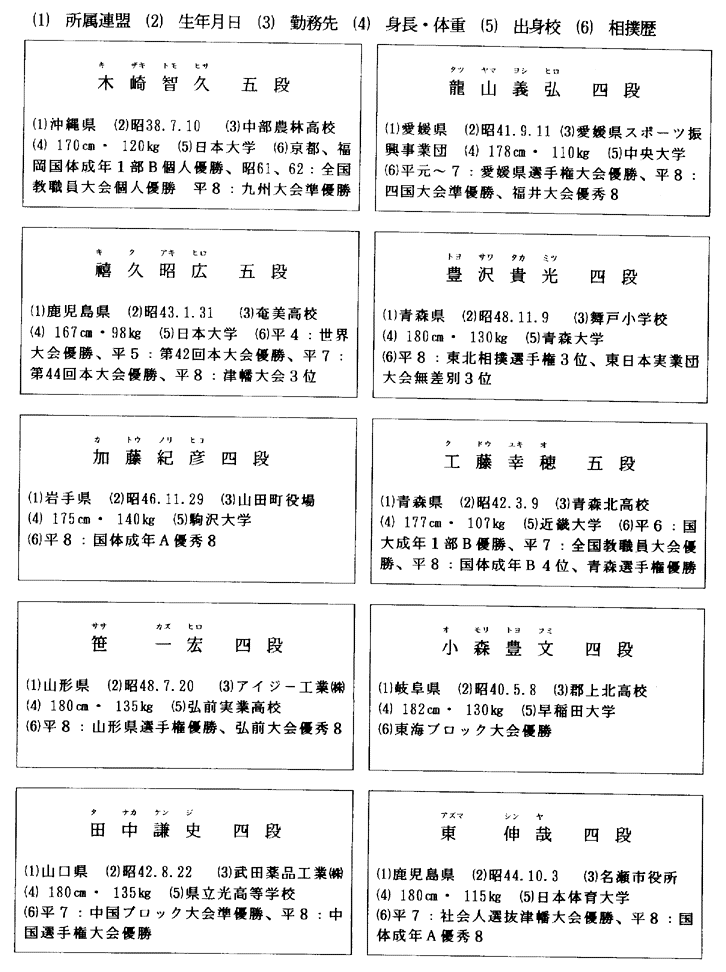 (1) 所属連盟 (2) 生年月日 (3) 勤務先 (4) 身長・体重 (5) 出身校 (6) 相撲歴
キ ザキ トモ ヒサ
木崎智久 五段
(1)沖縄県 (2)昭38.7.10 (3)中部農林高校
(4) 170cm・ 120kg (5)日本大学 (6)京都、福
岡国体成年1部B個人優勝、昭61、62：全国
教職員大会個人優勝 平8：九州大会準優勝
タツ ヤマ ヨシ ヒロ
龍山義弘 四段
(1)愛媛県 (2)昭41.9.11 (3)愛媛県スポーツ振
興事業団 (4) 178cm・ 110kg (5)中央大学
(6)平元～7：愛媛県選手権大会優勝、平8：
四国大会準優勝、福井大会優秀8
キ ク アキ ヒロ
禧久昭広 五段
(1)鹿児島県 (2)昭43.1.31 (3)奄美高校
(4) 167cm・98kg (5)日本大学 (6)平4：世界
大会優勝、平5：第42回本大会優勝、平7：
第44回本大会優勝、平8：津幡大会3位
トヨ サワ タカ ミツ
豊沢貴光 四段
(1)青森県 (2)昭48.11.9 (3)舞戸小学校
(4) 180cm・ 130kg (5)青森大学
(6)平8：東北相撲選手権3位、東日本実業団
大会無差別3位
カ トウ ノリ ヒコ
加藤紀彦 四段
(1)岩手県 (2)昭46.11.29 (3)山田町役場
(4) 175cm・ 140kg (5)駒沢大学
(6)平8：国体成年A優秀8
ク ドウ ユキ オ
工藤幸穂 五段
(1)青森県 (2)昭42.3.9 (3)青森北高校
(4) 177cm・ 107kg (5)近畿大学 (6)平6：国
大成年1部B優勝、平7：全国教職員大会優
勝、平8：国体成年B4位、青森選手権優勝
ササ カズ ヒロ
笹一宏 四段
(1)山形県 (2)昭48.7.20 (3)アイジー工業㈱
(4) 180cm・ 135kg (5)弘前実業高校
(6)平8：山形県選手権優勝、弘前大会優秀8
オ モリ トヨ フミ
小森豊文 四段
(1)岐阜県 (2)昭40.5.8 (3)郡上北高校
(4) 182cm・ 130kg (5)早稲田大学
(6)東海ブロック大会優勝
タ ナカ ケン ジ
田中謙史 四段
(1)山口県 (2)昭42.8.22 (3)武田薬品工業㈱
(4) 180cm・ 135kg (5)県立光高等学校
(6)平7：中国ブロック大会準優勝、平8：中
国選手権大会優勝
アズマ シン ヤ
東伸哉 四段
(1)鹿児島県 (2)昭44.10.3 (3)名瀬市役所
(4) 180cm・ 115kg (5)日本体育大学
(6)平7：社会人選抜津幡大会優勝、平8：国
体成年A優秀8